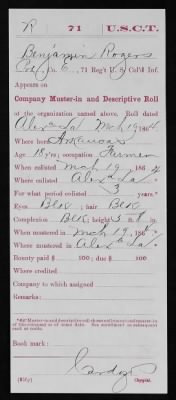 R 71 U.S.C.T.
Benjamin Rogers
Co. C., 71 Reg't U. S. Col'd Inf.
Appears on
Company Muster-in and Descriptive Roll
of the organization named above. Roll dated
Alex La Mch 19, 1864
Where born Arkansas
Age 18 y'rs; occupation Farmer
When enlisted Mch 19, 1864
Where enlisted Alex La.
For what period enlisted 3 years.
Eyes Blk; hair Blk
Complexion Blk; height 5 ft. in.
When mustered in Mch 19, 1864
Where mustered in Alex La.
Bounty paid $ 100; due $ 100
Where credited
Company to which assigned
Remarks:
Book mark:
Copyist.